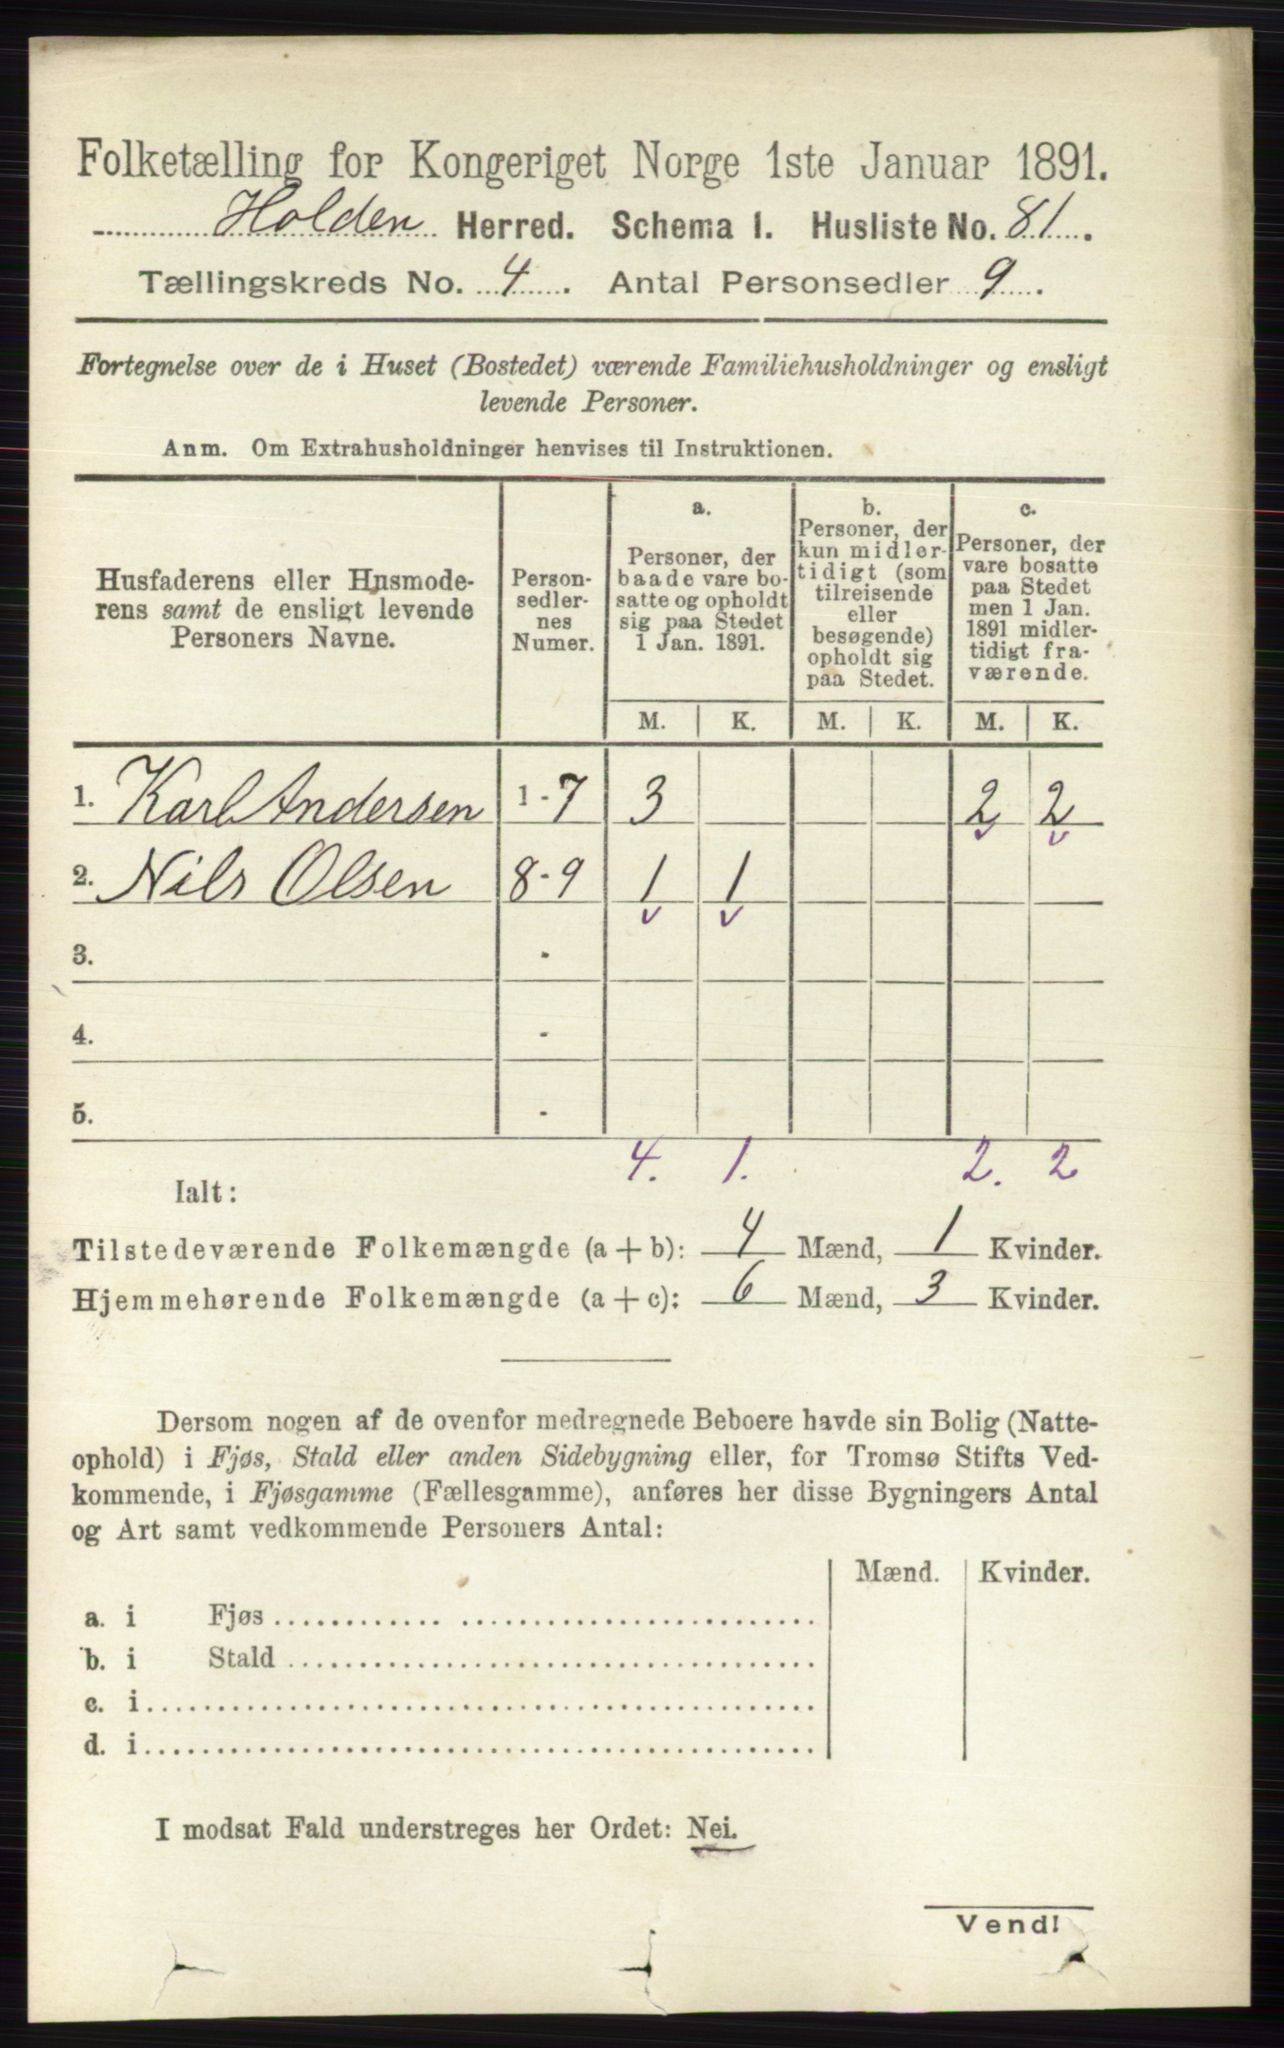 Folketælling for Kongeriget Norge 1ste Januar 1891.
Holden Herred. Schema 1. Husliste No. 81.
Tællingskreds No. 4. Antal Personsedler 9.
Fortegnelse over de i Huset (Bostedet) værende Familiehusholdninger og ensligt
levende Personer.
Anm. Om Extrahusholdninger henvises til Instruktionen.
Husfaderens eller Husmode-
rens samt de ensligt levende
Personers Navne.
Person-
sedler-
nes
Numer.
a.
Personer, der
baade vare bo-
satte og opholdt
sig paa Stedet
1 Jan. 1891.
b.
Personer, der
kun midler-
tidigt (som
tilreisende
eller
besøgende)
opholdt sig
paa Stedet.
c.
Personer, der
vare bosatte
paa Stedet
men 1 Jan.
1891 midler-
tidigt fra-
værende.
M. K. M. K. M. K.
1. Karl Andersen 1-7 3 2 2
2. Nils Olsen 8-9 1 1
3. -
4. -
5. -
4. 1. 2. 2
Ialt:
Tilstedeværende Folkemængde (a + b): 4 Mænd, 1 Kvinder.
Hjemmehørende Folkemængde (a + c): 6 Mænd, 3 Kvinder.
Dersom nogen af de ovenfor medregnede Beboere havde sin Bolig (Natte-
ophold) i Fjøs, Stald eller anden Sidebygning eller, for Tromsø Stifts Ved-
kommende, i Fjøsgamme (Fællesgamme), anføres her disse Bygningers Antal
og Art samt vedkommende Personers Antal:
Mænd. Kvinder.
a. i Fjøs
b. i Stald
c. i
d. i
I modsat Fald understreges her Ordet: Nei.
Vend!